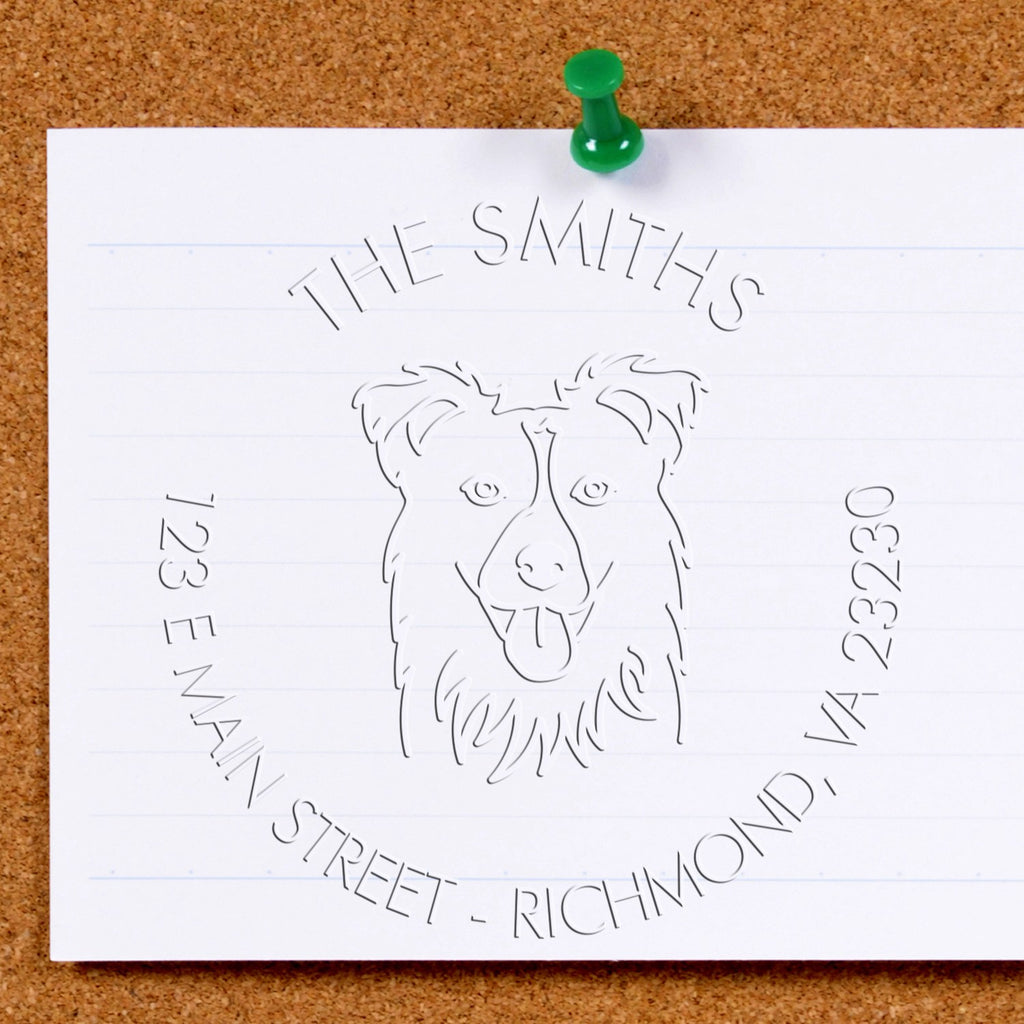 THE SMITHS
123 E MAIN STREET - RICHMOND, VA 23230